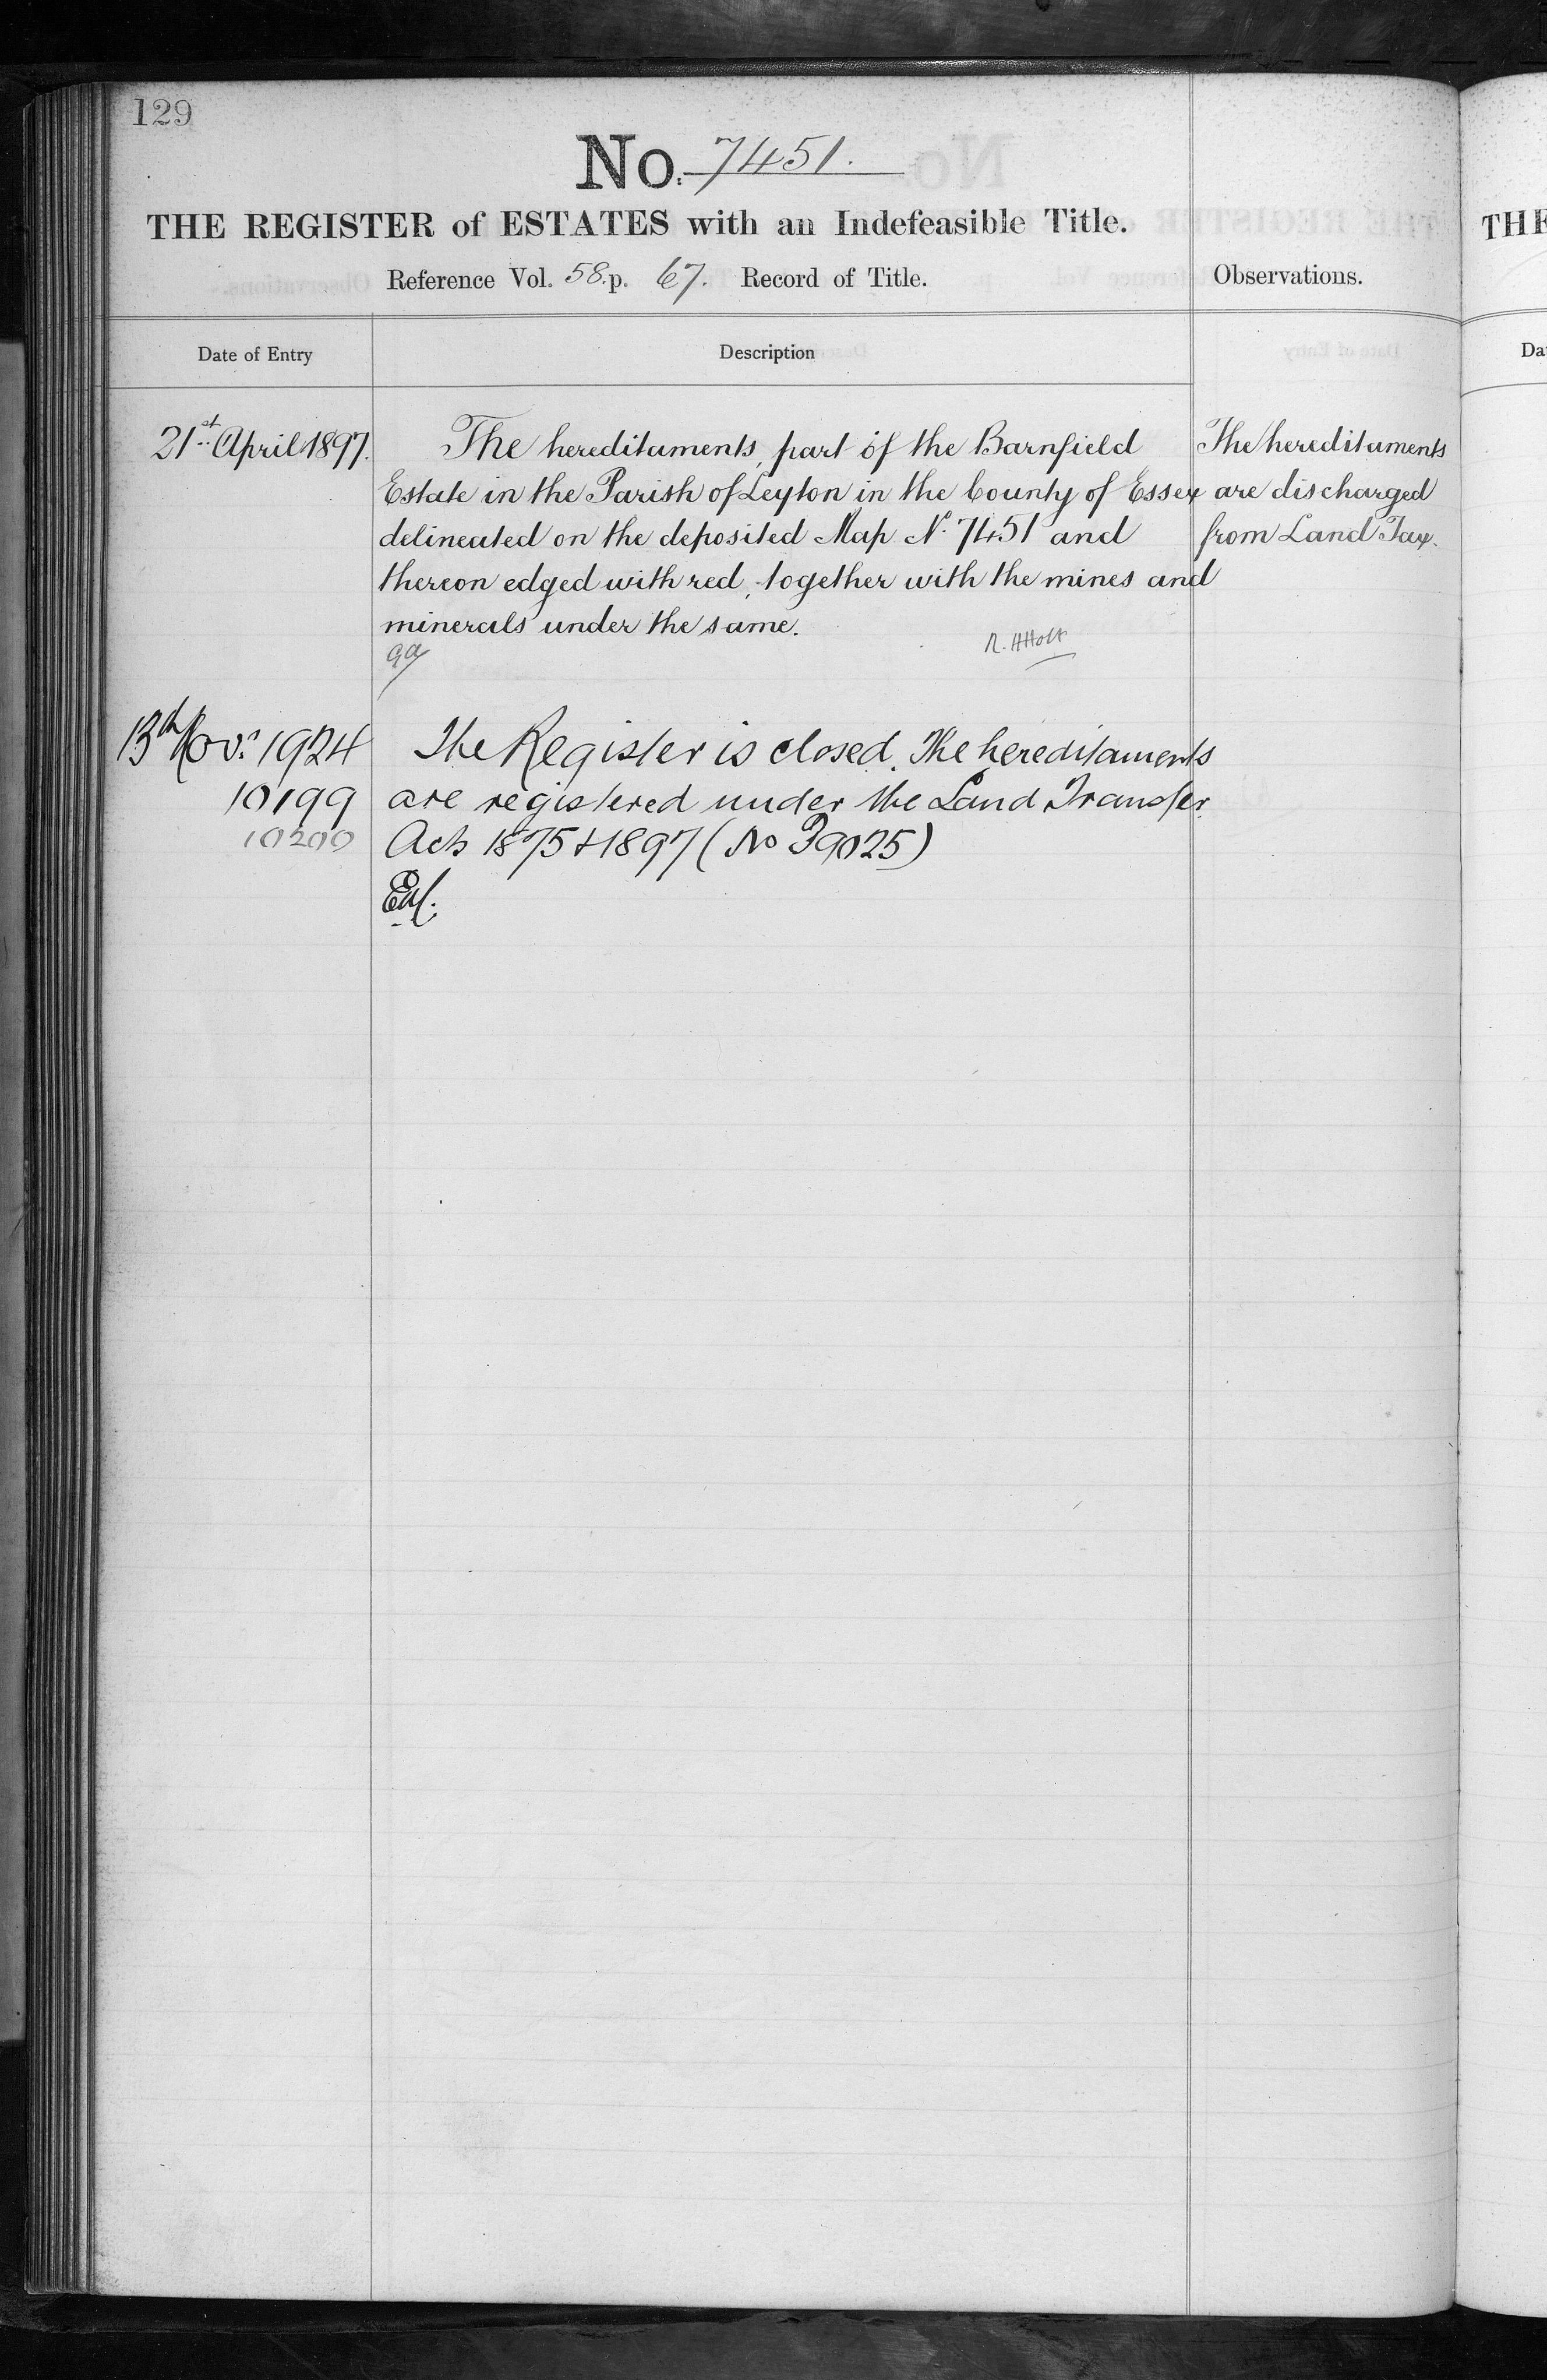 129
No. 7451.
THE REGISTER of ESTATES with an Indefeasible Title.
Reference Vol. 58. p. 67. Record of Title.
Observations.
Date of Entry
Description
21st April 1897.
The hereditaments, part of the Barnfield
Estate in the Parish of Leyton in the County of Essex
delineated on the deposited Map No. 7451 and
thereon edged with red, together with the mines and
minerals under the same.
R. H Holt
The hereditaments
are discharged
from Land Tax.
13th Nov: 1924
10199
10200
The Register is closed. The hereditaments
are registered under the Land Transfer
Acts 1875 & 1897 (No P9025)
THE
Da